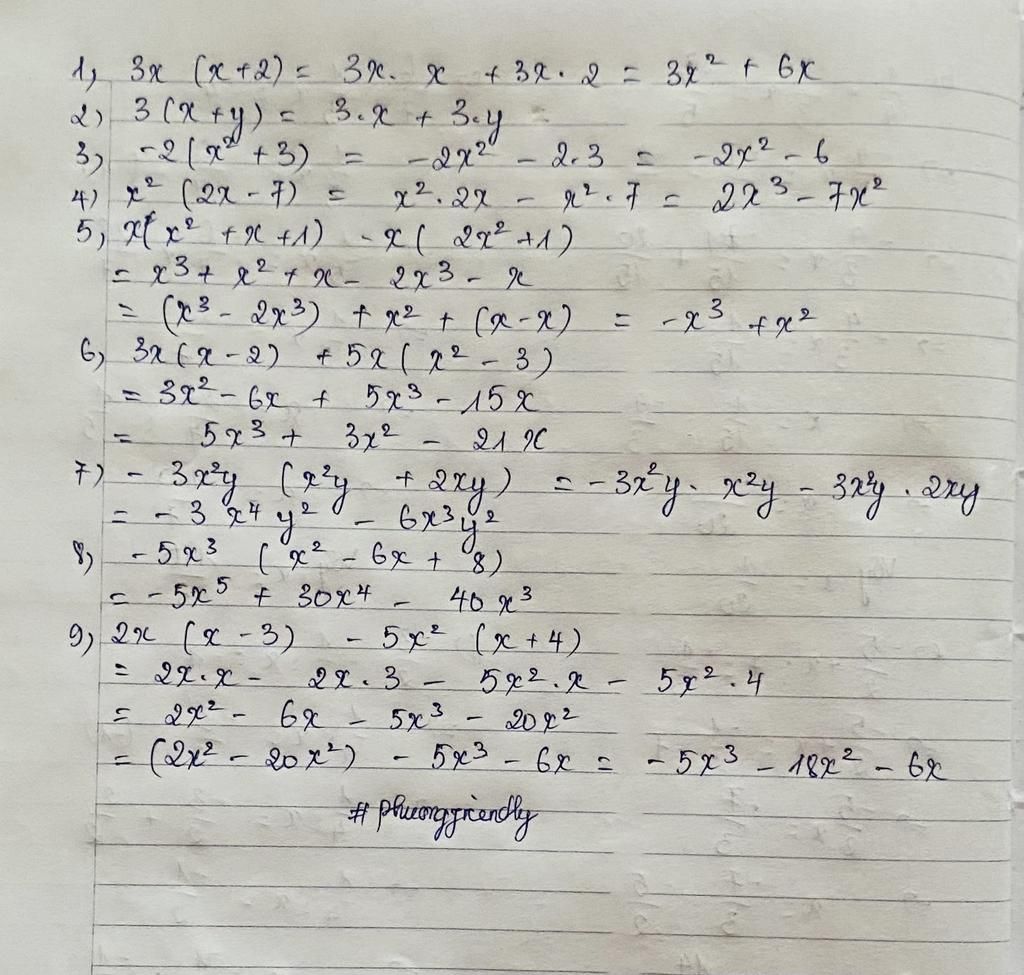 1, 3x (x+2) = 3x. x + 3x. 2 = 3x² + 6x
2) 3 (x + y) = 3.x + 3.y
3, -2 (x² + 3) = -2x² - 2.3 = -2x² - 6
4) x² (2x - 7) = x². 2x - x². 7 = 2x³ - 7x²
5, x(x² + x +1) - x( 2x² +1)
= x³ + x² + x - 2x³ - x
= (x³ - 2x³) + x² + (x - x) = -x³ + x²
6, 3x (x - 2) + 5x ( x² - 3)
= 3x² - 6x + 5x³ - 15x
= 5x³ + 3x² - 21x
7) - 3x²y (x²y + 2xy) = - 3x²y. x²y - 3x²y. 2xy
= - 3x⁴y² - 6x³y²
8, -5x³ (x² - 6x + 8)
= -5x⁵ + 30x⁴ - 40x³
9, 2x (x - 3) - 5x² (x + 4)
= 2x.x - 2x.3 - 5x².x - 5x².4
= 2x² - 6x - 5x³ - 20x²
= (2x² - 20x²) - 5x³ - 6x = -5x³ - 18x² - 6x
# phuongfriendly